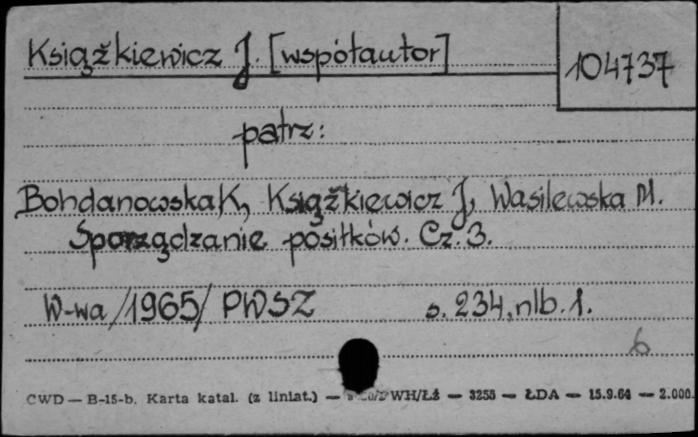 Książkiewicz J. [współautor]
104737
patrz:
Bohdanowska K, Książkiewicz J, Wasilewska M.
Sporządzanie posiłków. Cz. 3.
W-wa /1965/ PWSZ s. 234, nlb. 1.
6
CWD — B-15-b. Karta katal. (z liniat.) — WH/Łź — 3255 — ŁDA — 15.9.64 — 2.000.